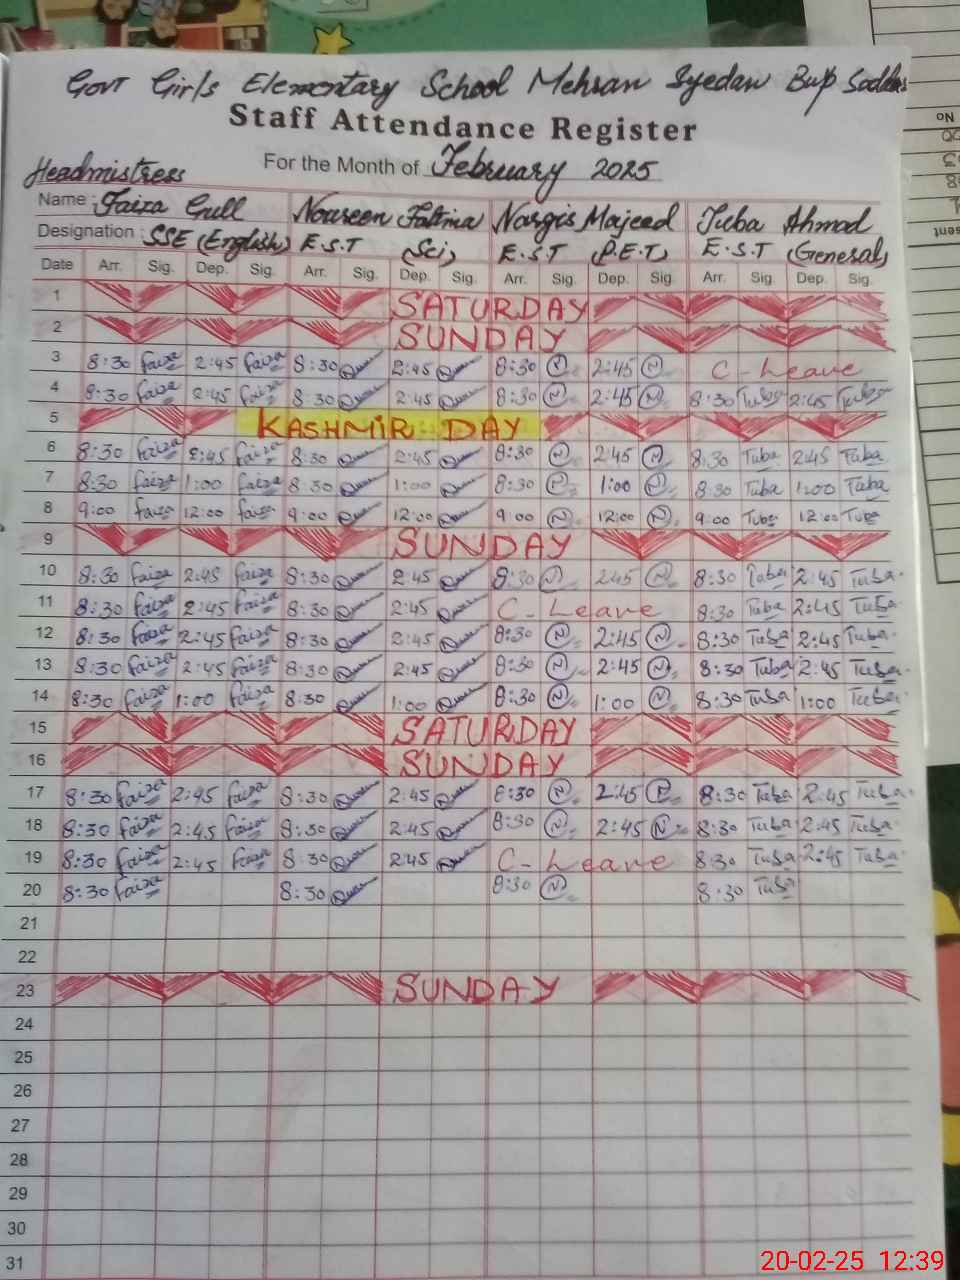 Govt Girls Elementary School Mehran Syedan Bwp Saddar
Staff Attendance Register
For the Month of February 2025
Headmistress
Name : Faiza Gull Noureen Fatima Nargis Majeed Tuba Ahmad
Designation : SSE (English) E.S.T (Sci) E.S.T (P.E.T) E.S.T (General)
Date Arr. Sig. Dep. Sig. Arr. Sig. Dep. Sig. Arr. Sig. Dep. Sig. Arr. Sig. Dep. Sig.
1 SATURDAY
2 SUNDAY
3 8:30 Faiza 2:45 Faiza 8:30 2:45 8:30 N 2:45 N C-Leave
4 8:30 Faiza 2:45 Faiza 8:30 2:45 8:30 N 2:45 N 8:30 Tuba 2:45 Tuba
5 KASHMIR DAY
6 8:30 Faiza 2:45 Faiza 8:30 2:45 8:30 N 2:45 N 8:30 Tuba 2:45 Tuba
7 8:30 Faiza 1:00 Faiza 8:30 1:00 8:30 N 1:00 N 8:30 Tuba 1:00 Tuba
8 9:00 Faiza 12:00 Faiza 9:00 12:00 9:00 N 12:00 N 9:00 Tuba 12:00 Tuba
9 SUNDAY
10 8:30 Faiza 2:45 Faiza 8:30 2:45 8:30 N 2:45 N 8:30 Tuba 2:45 Tuba
11 8:30 Faiza 2:45 Faiza 8:30 2:45 C-Leave 8:30 Tuba 2:45 Tuba
12 8:30 Faiza 2:45 Faiza 8:30 2:45 8:30 N 2:45 N 8:30 Tuba 2:45 Tuba
13 8:30 Faiza 2:45 Faiza 8:30 2:45 8:30 N 2:45 N 8:30 Tuba 2:45 Tuba
14 8:30 Faiza 1:00 Faiza 8:30 1:00 8:30 N 1:00 N 8:30 Tuba 1:00 Tuba
15 SATURDAY
16 SUNDAY
17 8:30 Faiza 2:45 Faiza 8:30 2:45 8:30 N 2:45 N 8:30 Tuba 2:45 Tuba
18 8:30 Faiza 2:45 Faiza 8:30 2:45 8:30 N 2:45 N 8:30 Tuba 2:45 Tuba
19 8:30 Faiza 2:45 Faiza 8:30 2:45 C-Leave 8:30 Tuba 2:45 Tuba
20 8:30 Faiza 8:30 8:30 N 8:30 Tuba
21
22
23 SUNDAY
24
25
26
27
28
29
30
31
20-02-25 12:39